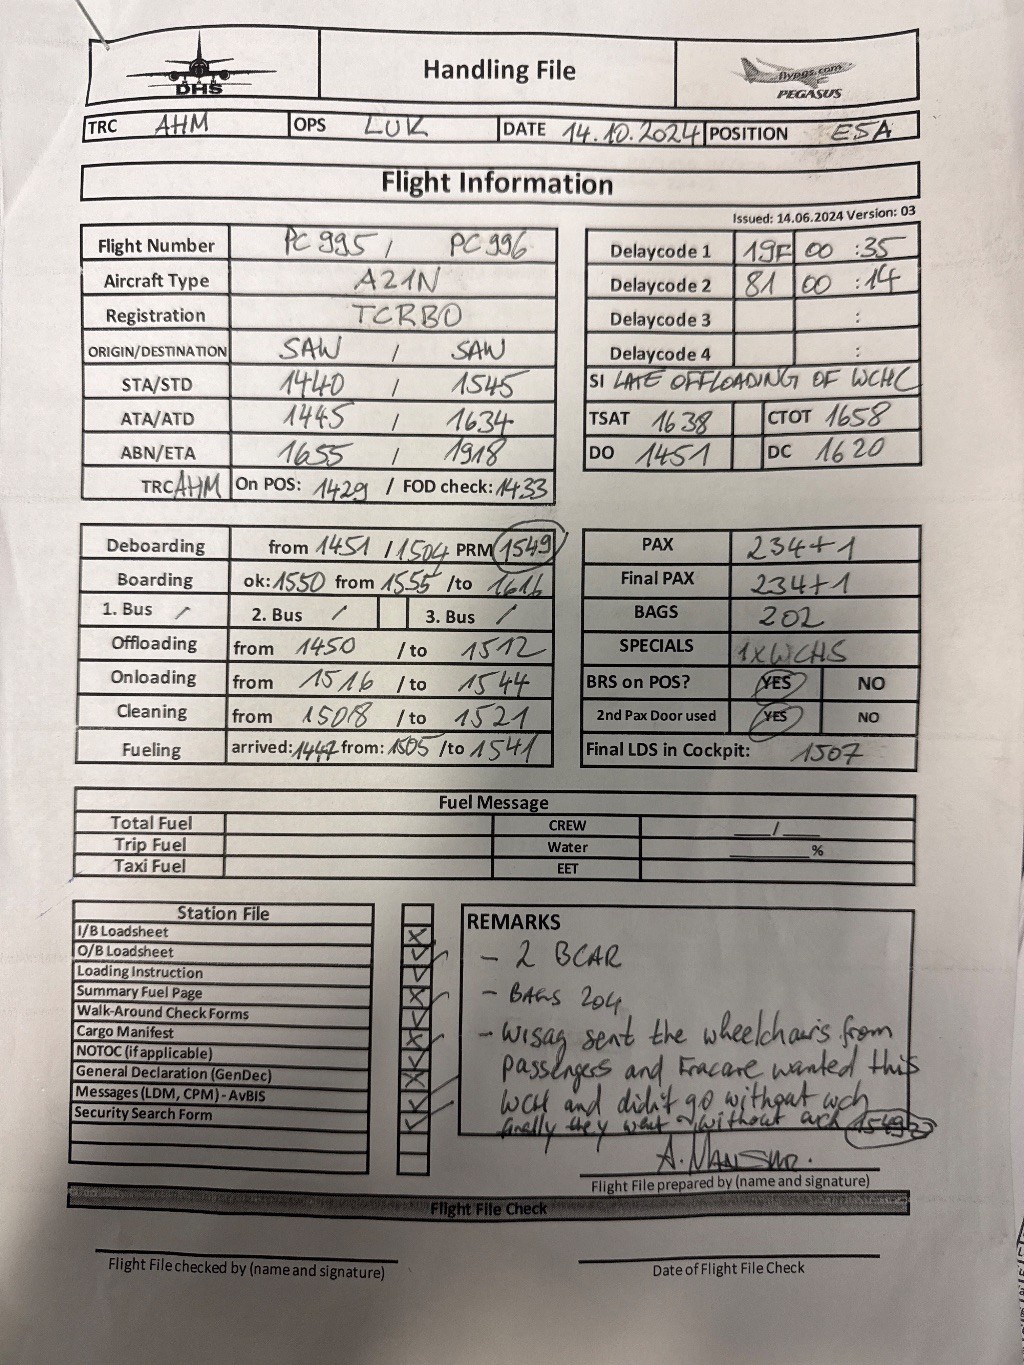 DHS
Handling File
flypgs.com
PEGASUS
TRC AHM OPS LUK DATE 14.10.2024 POSITION E5A
Flight Information
Issued: 14.06.2024 Version: 03
Flight Number PC 995 / PC 996
Aircraft Type A21N
Registration TCRBO
ORIGIN/DESTINATION SAW / SAW
STA/STD 1440 / 1545
ATA/ATD 1445 / 1634
ABN/ETA 1655 / 1918
TRC AHM On POS: 1429 / FOD check: 1433
Delaycode 1 19F 00 :35
Delaycode 2 81 00 :14
Delaycode 3 :
Delaycode 4 :
SI LATE OFFLOADING OF WCHC
TSAT 1638 CTOT 1658
DO 1451 DC 1620
Deboarding from 1451 / 1504 PRM 1549
Boarding ok: 1550 from 1555 /to 1616
1. Bus / 2. Bus / 3. Bus /
Offloading from 1450 / to 1512
Onloading from 1516 / to 1544
Cleaning from 1508 / to 1521
Fueling arrived: 1447 from: 1505 /to 1541
PAX 234+1
Final PAX 234+1
BAGS 202
SPECIALS 1xWCHS
BRS on POS? YES NO
2nd Pax Door used YES NO
Final LDS in Cockpit: 1507
Fuel Message
Total Fuel CREW ___/___
Trip Fuel Water ______%
Taxi Fuel EET
Station File
I/B Loadsheet
O/B Loadsheet
Loading Instruction
Summary Fuel Page
Walk-Around Check Forms
Cargo Manifest
NOTOC (if applicable)
General Declaration (GenDec)
Messages (LDM, CPM) - AvBIS
Security Search Form
REMARKS
- 2 BCAR
- BAGS 204
- Wisag sent the wheelchairs from
passengers and Fracare wanted this
WCH and didn't go without wch
finally they went without wch 1549
A. Mansur.
Flight File prepared by (name and signature)
Flight File Check
Flight File checked by (name and signature)
Date of Flight File Check